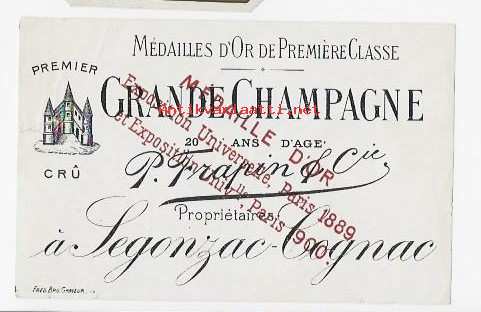 MÉDAILLES D'OR DE PREMIÈRE CLASSE
PREMIER
CRÛ
GRANDE CHAMPAGNE
20 ANS D'AGE
P. Frapin & Cie
Propriétaires
à Segonzac-Cognac
MÉDAILLE D'OR
Exposition Universelle, Paris 1889
et Exposition Univlle, Paris 1900.